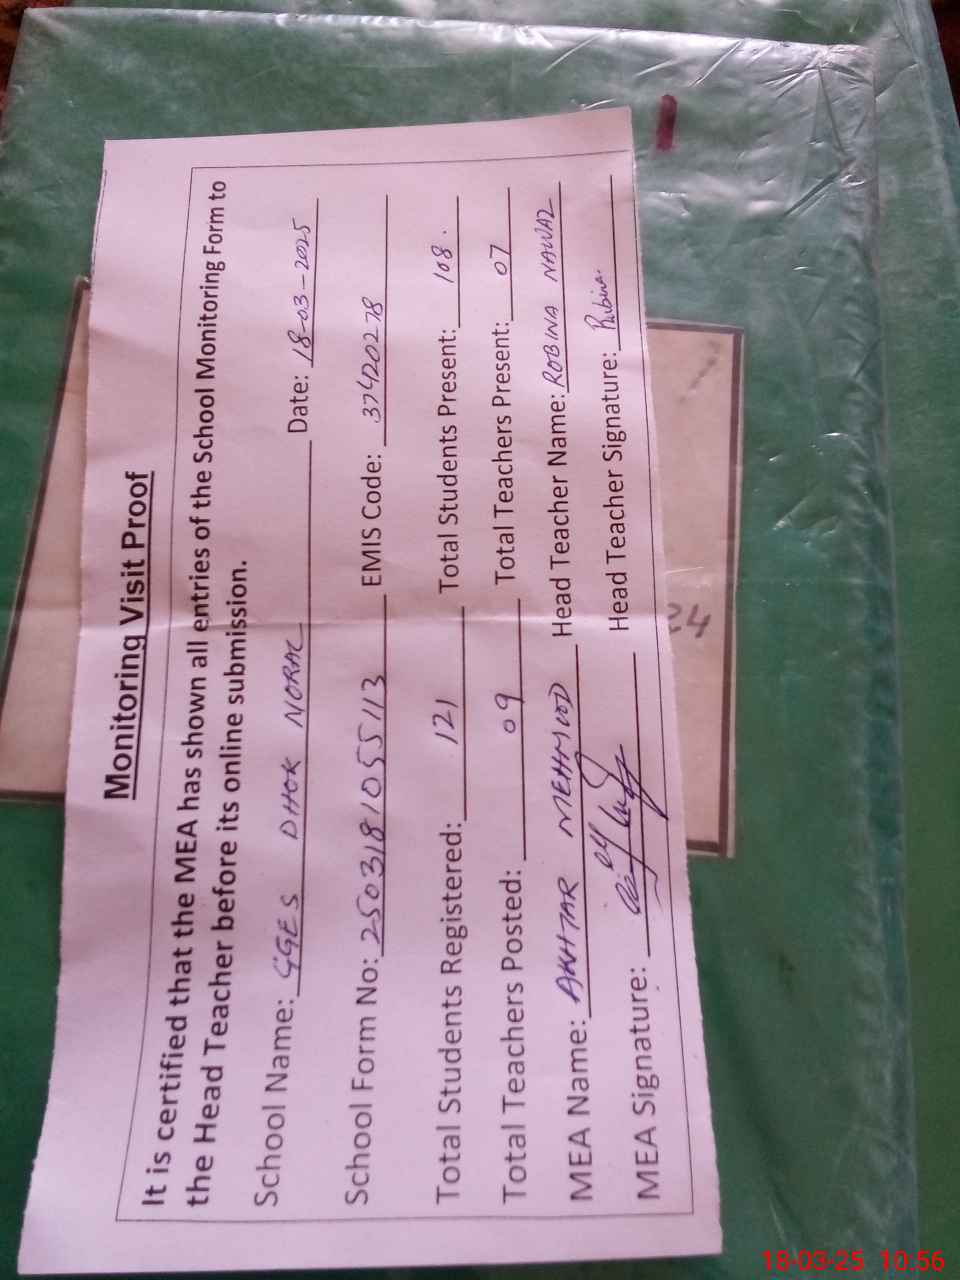 Monitoring Visit Proof
It is certified that the MEA has shown all entries of the School Monitoring Form to
the Head Teacher before its online submission.
School Name: GGES DHOK NORAC Date: 18-03-2025
School Form No: 2503181055113 EMIS Code: 37420278
Total Students Registered: 121 Total Students Present: 108.
Total Teachers Posted: 09 Total Teachers Present: 07
MEA Name: AKHTAR MEHMOOD Head Teacher Name: ROBINA NAWAZ
MEA Signature: Head Teacher Signature: Rubina.
24
18-03-25 10:56